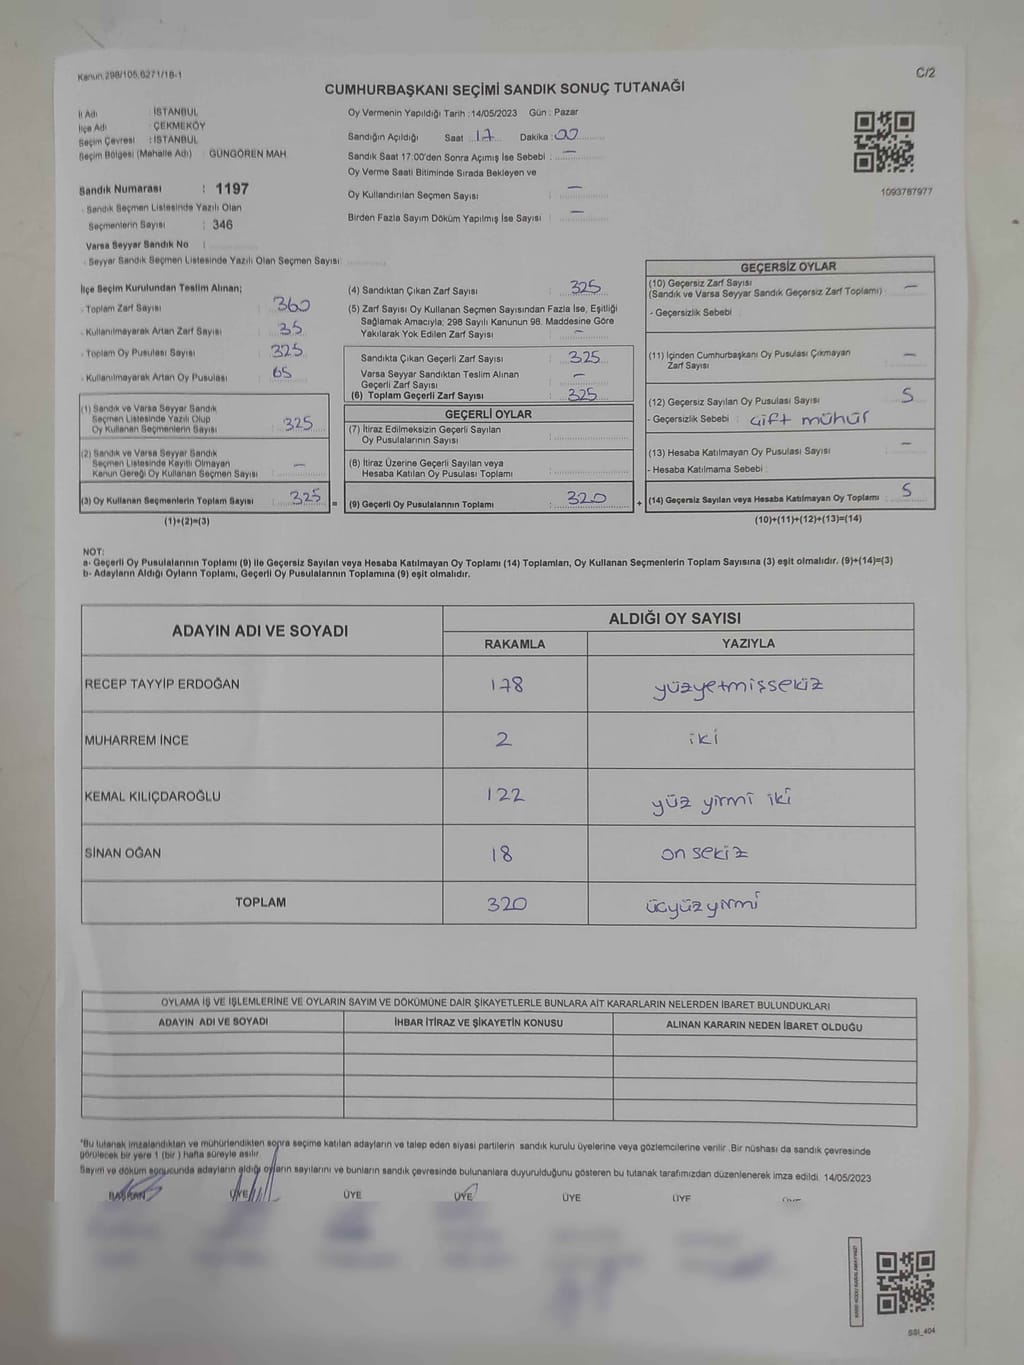 Kanun.298/105,6271/18-1
C/2
CUMHURBAŞKANI SEÇİMİ SANDIK SONUÇ TUTANAĞI
İl Adı : İSTANBUL
İlçe Adı : ÇEKMEKÖY
Seçim Çevresi : İSTANBUL
Seçim Bölgesi (Mahalle Adı) : GÜNGÖREN MAH
Sandık Numarası : 1197
- Sandık Seçmen Listesinde Yazılı Olan
Seçmenlerin Sayısı : 346
Varsa Seyyar Sandık No :
- Seyyar Sandık Seçmen Listesinde Yazılı Olan Seçmen Sayısı :
Oy Vermenin Yapıldığı Tarih : 14/05/2023 Gün : Pazar
Sandığın Açıldığı Saat : 17 Dakika : 00
Sandık Saat 17:00'den Sonra Açımış İse Sebebi : —
Oy Verme Saati Bitiminde Sırada Bekleyen ve
Oy Kullandırılan Seçmen Sayısı : —
Birden Fazla Sayım Döküm Yapılmış İse Sayısı : —
1093787977
İlçe Seçim Kurulundan Teslim Alınan;
- Toplam Zarf Sayısı : 360
- Kullanılmayarak Artan Zarf Sayısı : 35
- Toplam Oy Pusulası Sayısı : 325
- Kullanılmayarak Artan Oy Pusulası : 65
(1) Sandık ve Varsa Seyyar Sandık
Seçmen Listesinde Yazılı Olup
Oy Kullanan Seçmenlerin Sayısı : 325
(2) Sandık ve Varsa Seyyar Sandık
Seçmen Listesinde Kayıtlı Olmayan
Kanun Gereği Oy Kullanan Seçmen Sayısı : —
(3) Oy Kullanan Seçmenlerin Toplam Sayısı : 325 =
(1)+(2)=(3)
(4) Sandıktan Çıkan Zarf Sayısı : 325
(5) Zarf Sayısı Oy Kullanan Seçmen Sayısından Fazla İse, Eşitliği
Sağlamak Amacıyla; 298 Sayılı Kanunun 98. Maddesine Göre
Yakılarak Yok Edilen Zarf Sayısı : —
Sandıkta Çıkan Geçerli Zarf Sayısı : 325
Varsa Seyyar Sandıktan Teslim Alınan
Geçerli Zarf Sayısı : —
(6) Toplam Geçerli Zarf Sayısı : 325
GEÇERLİ OYLAR
(7) İtiraz Edilmeksizin Geçerli Sayılan
Oy Pusulalarının Sayısı :
(8) İtiraz Üzerine Geçerli Sayılan veya
Hesaba Katılan Oy Pusulası Toplamı :
(9) Geçerli Oy Pusulalarının Toplamı : 320 +
GEÇERSİZ OYLAR
(10) Geçersiz Zarf Sayısı
(Sandık ve Varsa Seyyar Sandık Geçersiz Zarf Toplamı) : —
- Geçersizlik Sebebi :
(11) İçinden Cumhurbaşkanı Oy Pusulası Çıkmayan
Zarf Sayısı : —
(12) Geçersiz Sayılan Oy Pusulası Sayısı : 5
- Geçersizlik Sebebi : Çift mühür
(13) Hesaba Katılmayan Oy Pusulası Sayısı : —
- Hesaba Katılmama Sebebi :
(14) Geçersiz Sayılan veya Hesaba Katılmayan Oy Toplamı : 5
(10)+(11)+(12)+(13)=(14)
NOT:
a- Geçerli Oy Pusulalarının Toplamı (9) ile Geçersiz Sayılan veya Hesaba Katılmayan Oy Toplamı (14) Toplamları, Oy Kullanan Seçmenlerin Toplam Sayısına (3) eşit olmalıdır. (9)+(14)=(3)
b- Adayların Aldığı Oyların Toplamı, Geçerli Oy Pusulalarının Toplamına (9) eşit olmalıdır.
ADAYIN ADI VE SOYADI
ALDIĞI OY SAYISI
RAKAMLA YAZIYLA
RECEP TAYYİP ERDOĞAN 178 yüzyetmişsekiz
MUHARREM İNCE 2 iki
KEMAL KILIÇDAROĞLU 122 yüz yirmi iki
SİNAN OĞAN 18 on sekiz
TOPLAM 320 üçyüzyirmi
OYLAMA İŞ VE İŞLEMLERİNE VE OYLARIN SAYIM VE DÖKÜMÜNE DAİR ŞİKAYETLERLE BUNLARA AİT KARARLARIN NELERDEN İBARET BULUNDUKLARI
ADAYIN ADI VE SOYADI İHBAR İTİRAZ VE ŞİKAYETİN KONUSU ALINAN KARARIN NEDEN İBARET OLDUĞU
"Bu tutanak imzalandıktan ve mühürlendikten sonra seçime katılan adayların ve talep eden siyasi partilerin sandık kurulu üyelerine veya gözlemcilerine verilir .Bir nüshası da sandık çevresinde
görülecek bir yere 1 (bir ) hafta süreyle asılır.
Sayım ve döküm sonucunda adayların aldığı oyların sayılarını ve bunların sandık çevresinde bulunanlara duyurulduğunu gösteren bu tutanak tarafımızdan düzenlenerek imza edildi. 14/05/2023
BAŞKAN ÜYE ÜYE ÜYE ÜYE ÜYE
SSI_404